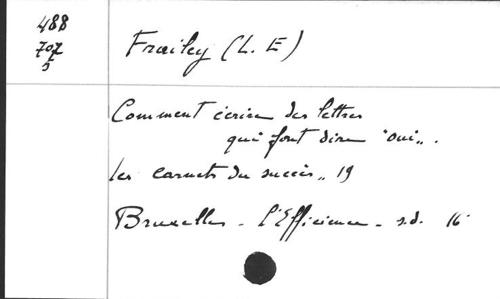 488
707
5
Frailey (L. E)
Comment écrire des lettres
qui font dire "oui" .
les carnets du succès" 19
Bruxelles - l'Efficience - s.d. 16